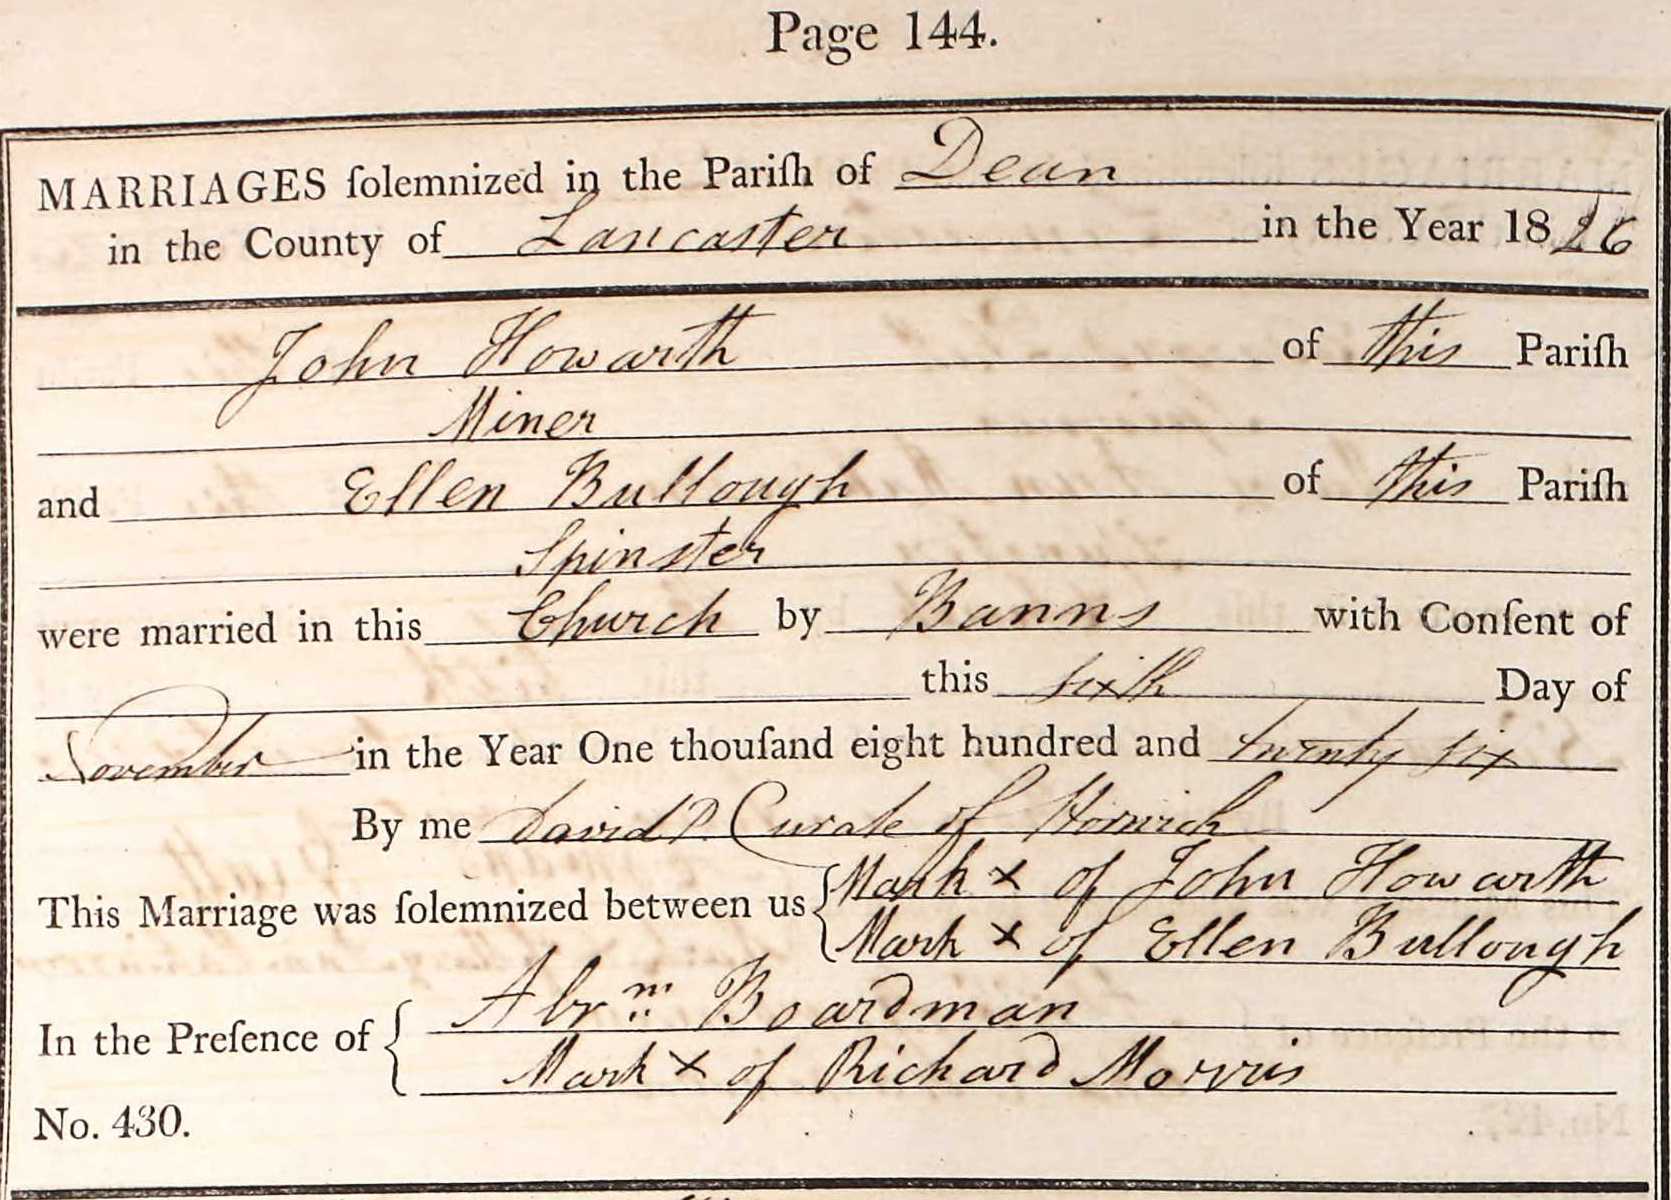 Page 144.
MARRIAGES ſolemnized in the Pariſh of Dean
in the County of Lancaster in the Year 1826
John Howarth of this Pariſh
Miner
and Ellen Bullough of this Pariſh
Spinster
were married in this Church by Banns with Conſent of
this sixth Day of
November in the Year One thouſand eight hundred and twenty six
By me David Curate of Horwich
This Marriage was ſolemnized between us { Mark x of John Howarth
Mark x of Ellen Bullough
In the Preſence of { Abrm Boardman
Mark x of Richard Morris
No. 430.